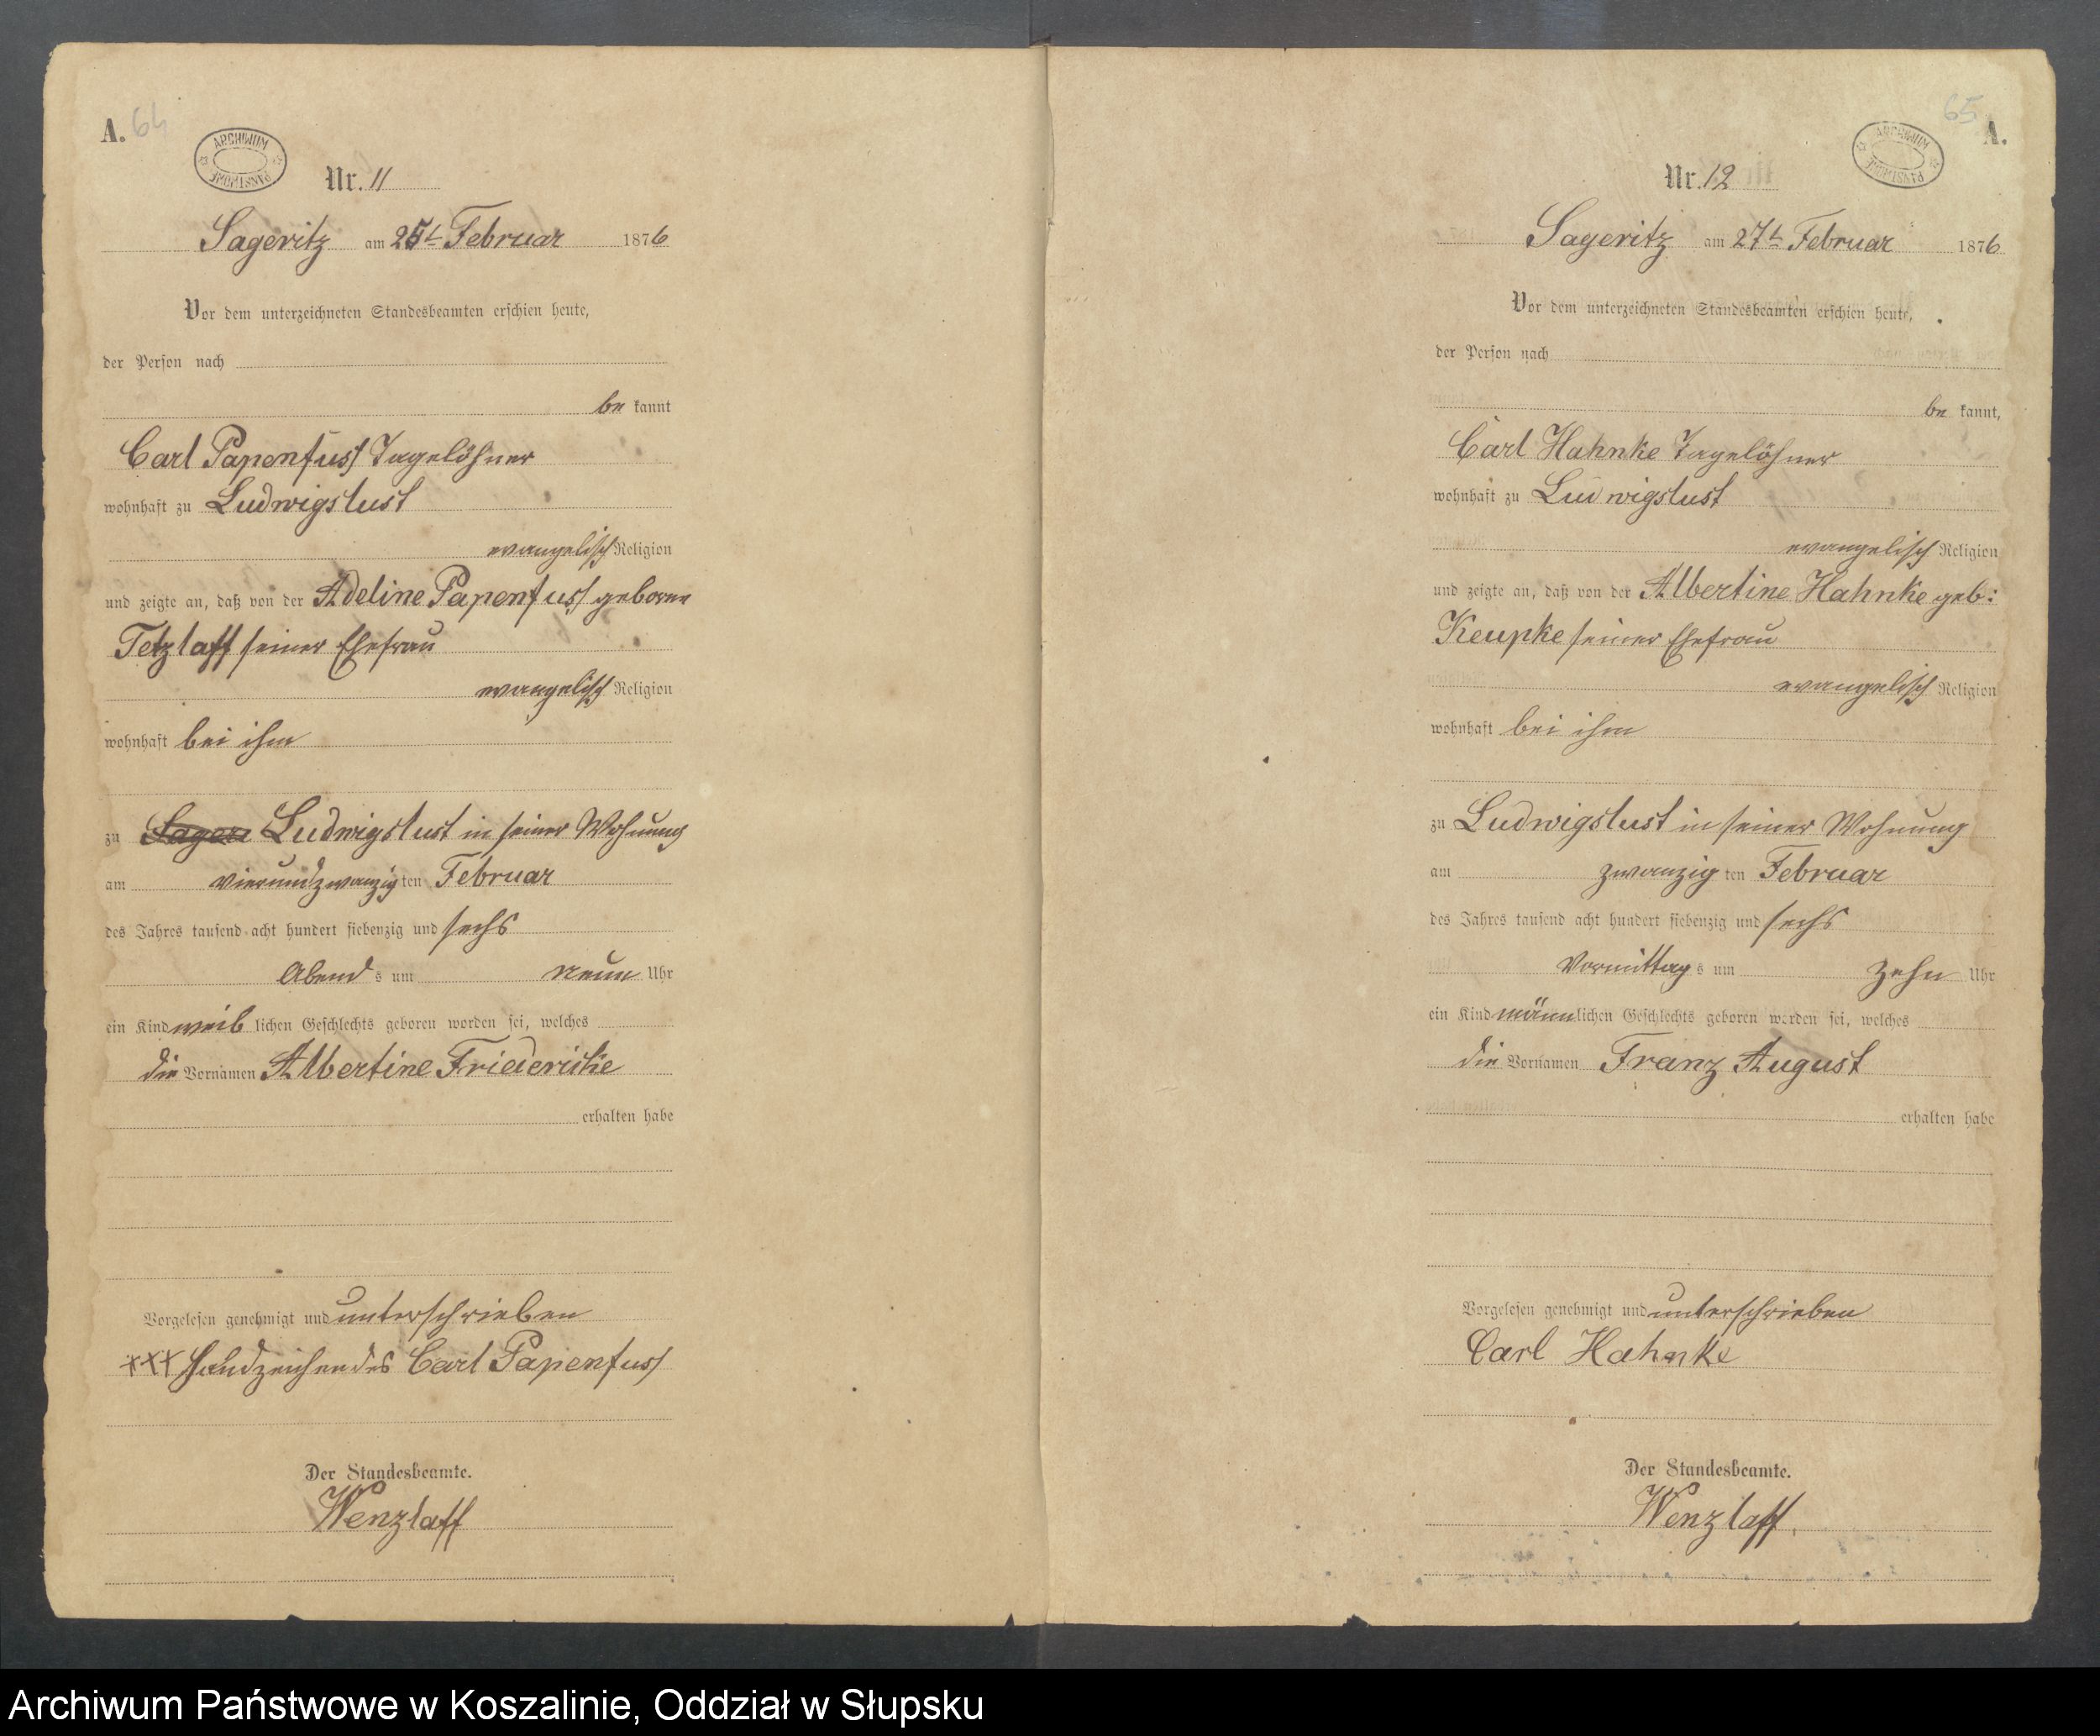 A. 64
ARCHIWUM PAŃSTWOWE
Nr. 11
Sageritz am 25t Februar 1876
Vor dem unterzeichneten Standesbeamten erschien heute,
der Person nach
be kannt
Carl Papenfuss Tagelöhner
wohnhaft zu Ludwigslust
evangelisch Religion
und zeigte an, daß von der Adeline Papenfuss geborne
Tetzlaff seiner Ehefrau
evangelisch Religion
wohnhaft bei ihm
zu Ludwigslust in seiner Wohnung
am vierundzwanzig ten Februar
des Jahres tausend acht hundert siebenzig und sechs
Abend s um neun Uhr
ein Kind weib lichen Geschlechts geboren worden sei, welches
die Vornamen Albertine Friederike
erhalten habe
Vorgelesen genehmigt und unterschrieben
+++ Handzeichen des Carl Papenfuss
Der Standesbeamte.
Wenzlaff
65 A.
ARCHIWUM PAŃSTWOWE
Nr. 12
Sageritz am 27t Februar 1876
Vor dem unterzeichneten Standesbeamten erschien heute,
der Person nach
be kannt,
Carl Hahnke Tagelöhner
wohnhaft zu Ludwigslust
evangelisch Religion
und zeigte an, daß von der Albertine Hahnke geb:
Keupke seiner Ehefrau
evangelisch Religion
wohnhaft bei ihm
zu Ludwigslust in seiner Wohnung
am zwanzig ten Februar
des Jahres tausend acht hundert siebenzig und sechs
Vormittag s um zehn Uhr
ein Kind männ lichen Geschlechts geboren worden sei, welches
die Vornamen Franz August
erhalten habe
Vorgelesen genehmigt und unterschrieben
Carl Hahnke
Der Standesbeamte.
Wenzlaff.
Archiwum Państwowe w Koszalinie, Oddział w Słupsku